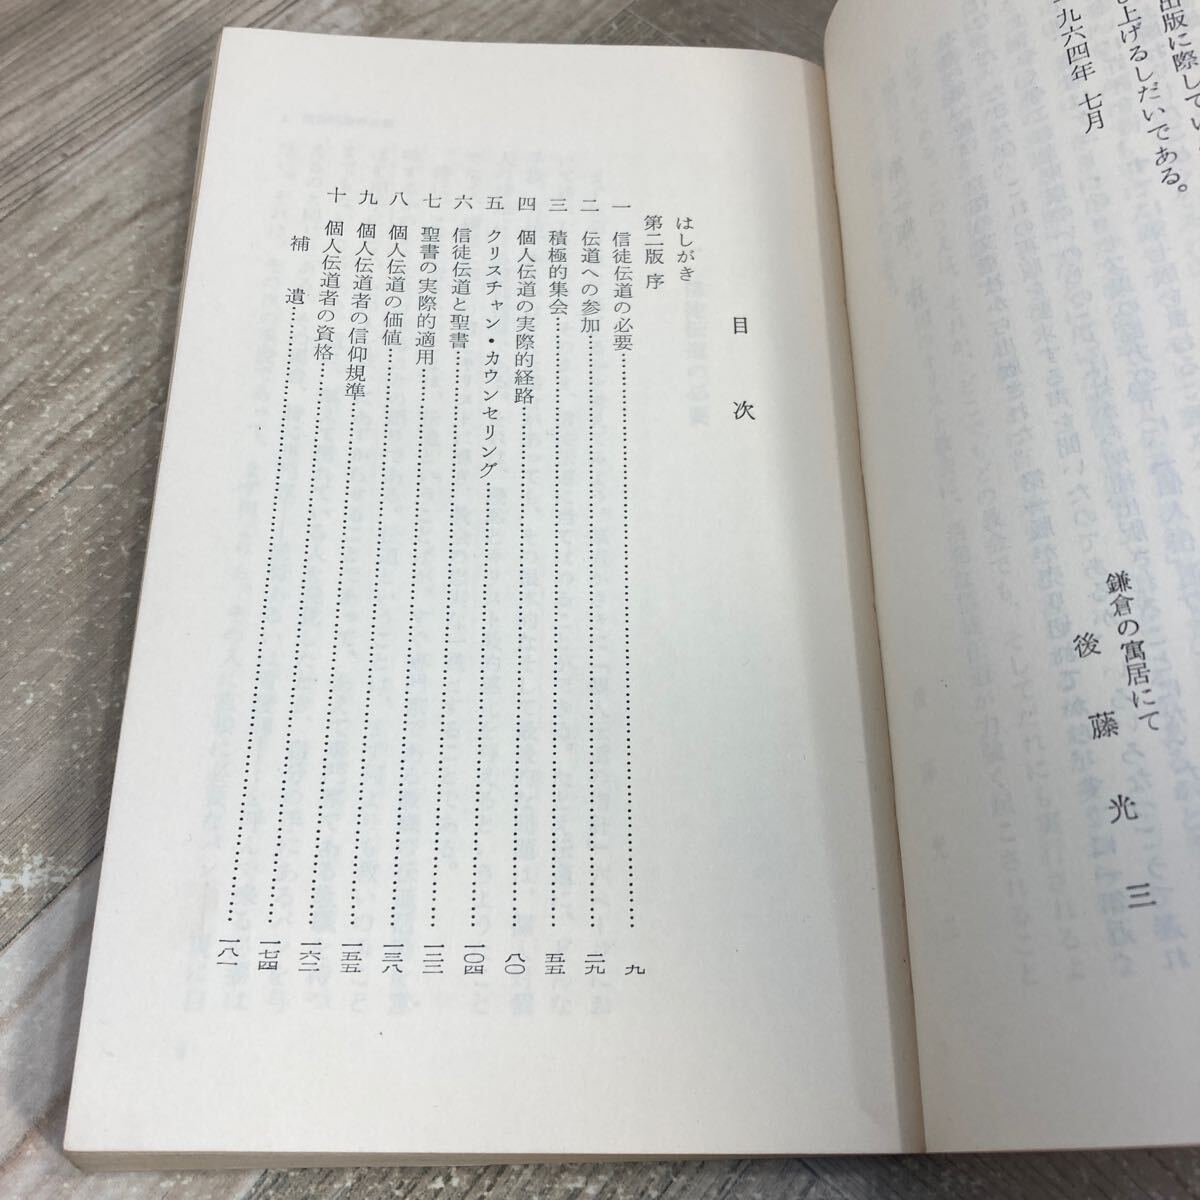 出版に際してい
し上げるしだいである。
九六四年 七月
鎌倉の寓居にて
後藤光三
目次
はしがき
第二版 序
一 信徒伝道の必要……九
二 伝道への参加……二九
三 積極的集会……五五
四 個人伝道の実際的経路……八〇
五 クリスチャン・カウンセリング……一〇四
六 信徒伝道と聖書……
七 聖書の実際的適用……一三八
八 個人伝道の価値……一五五
九 個人伝道者の信仰規準……一六二
十 個人伝道者の資格……一七四
補遺……一八一